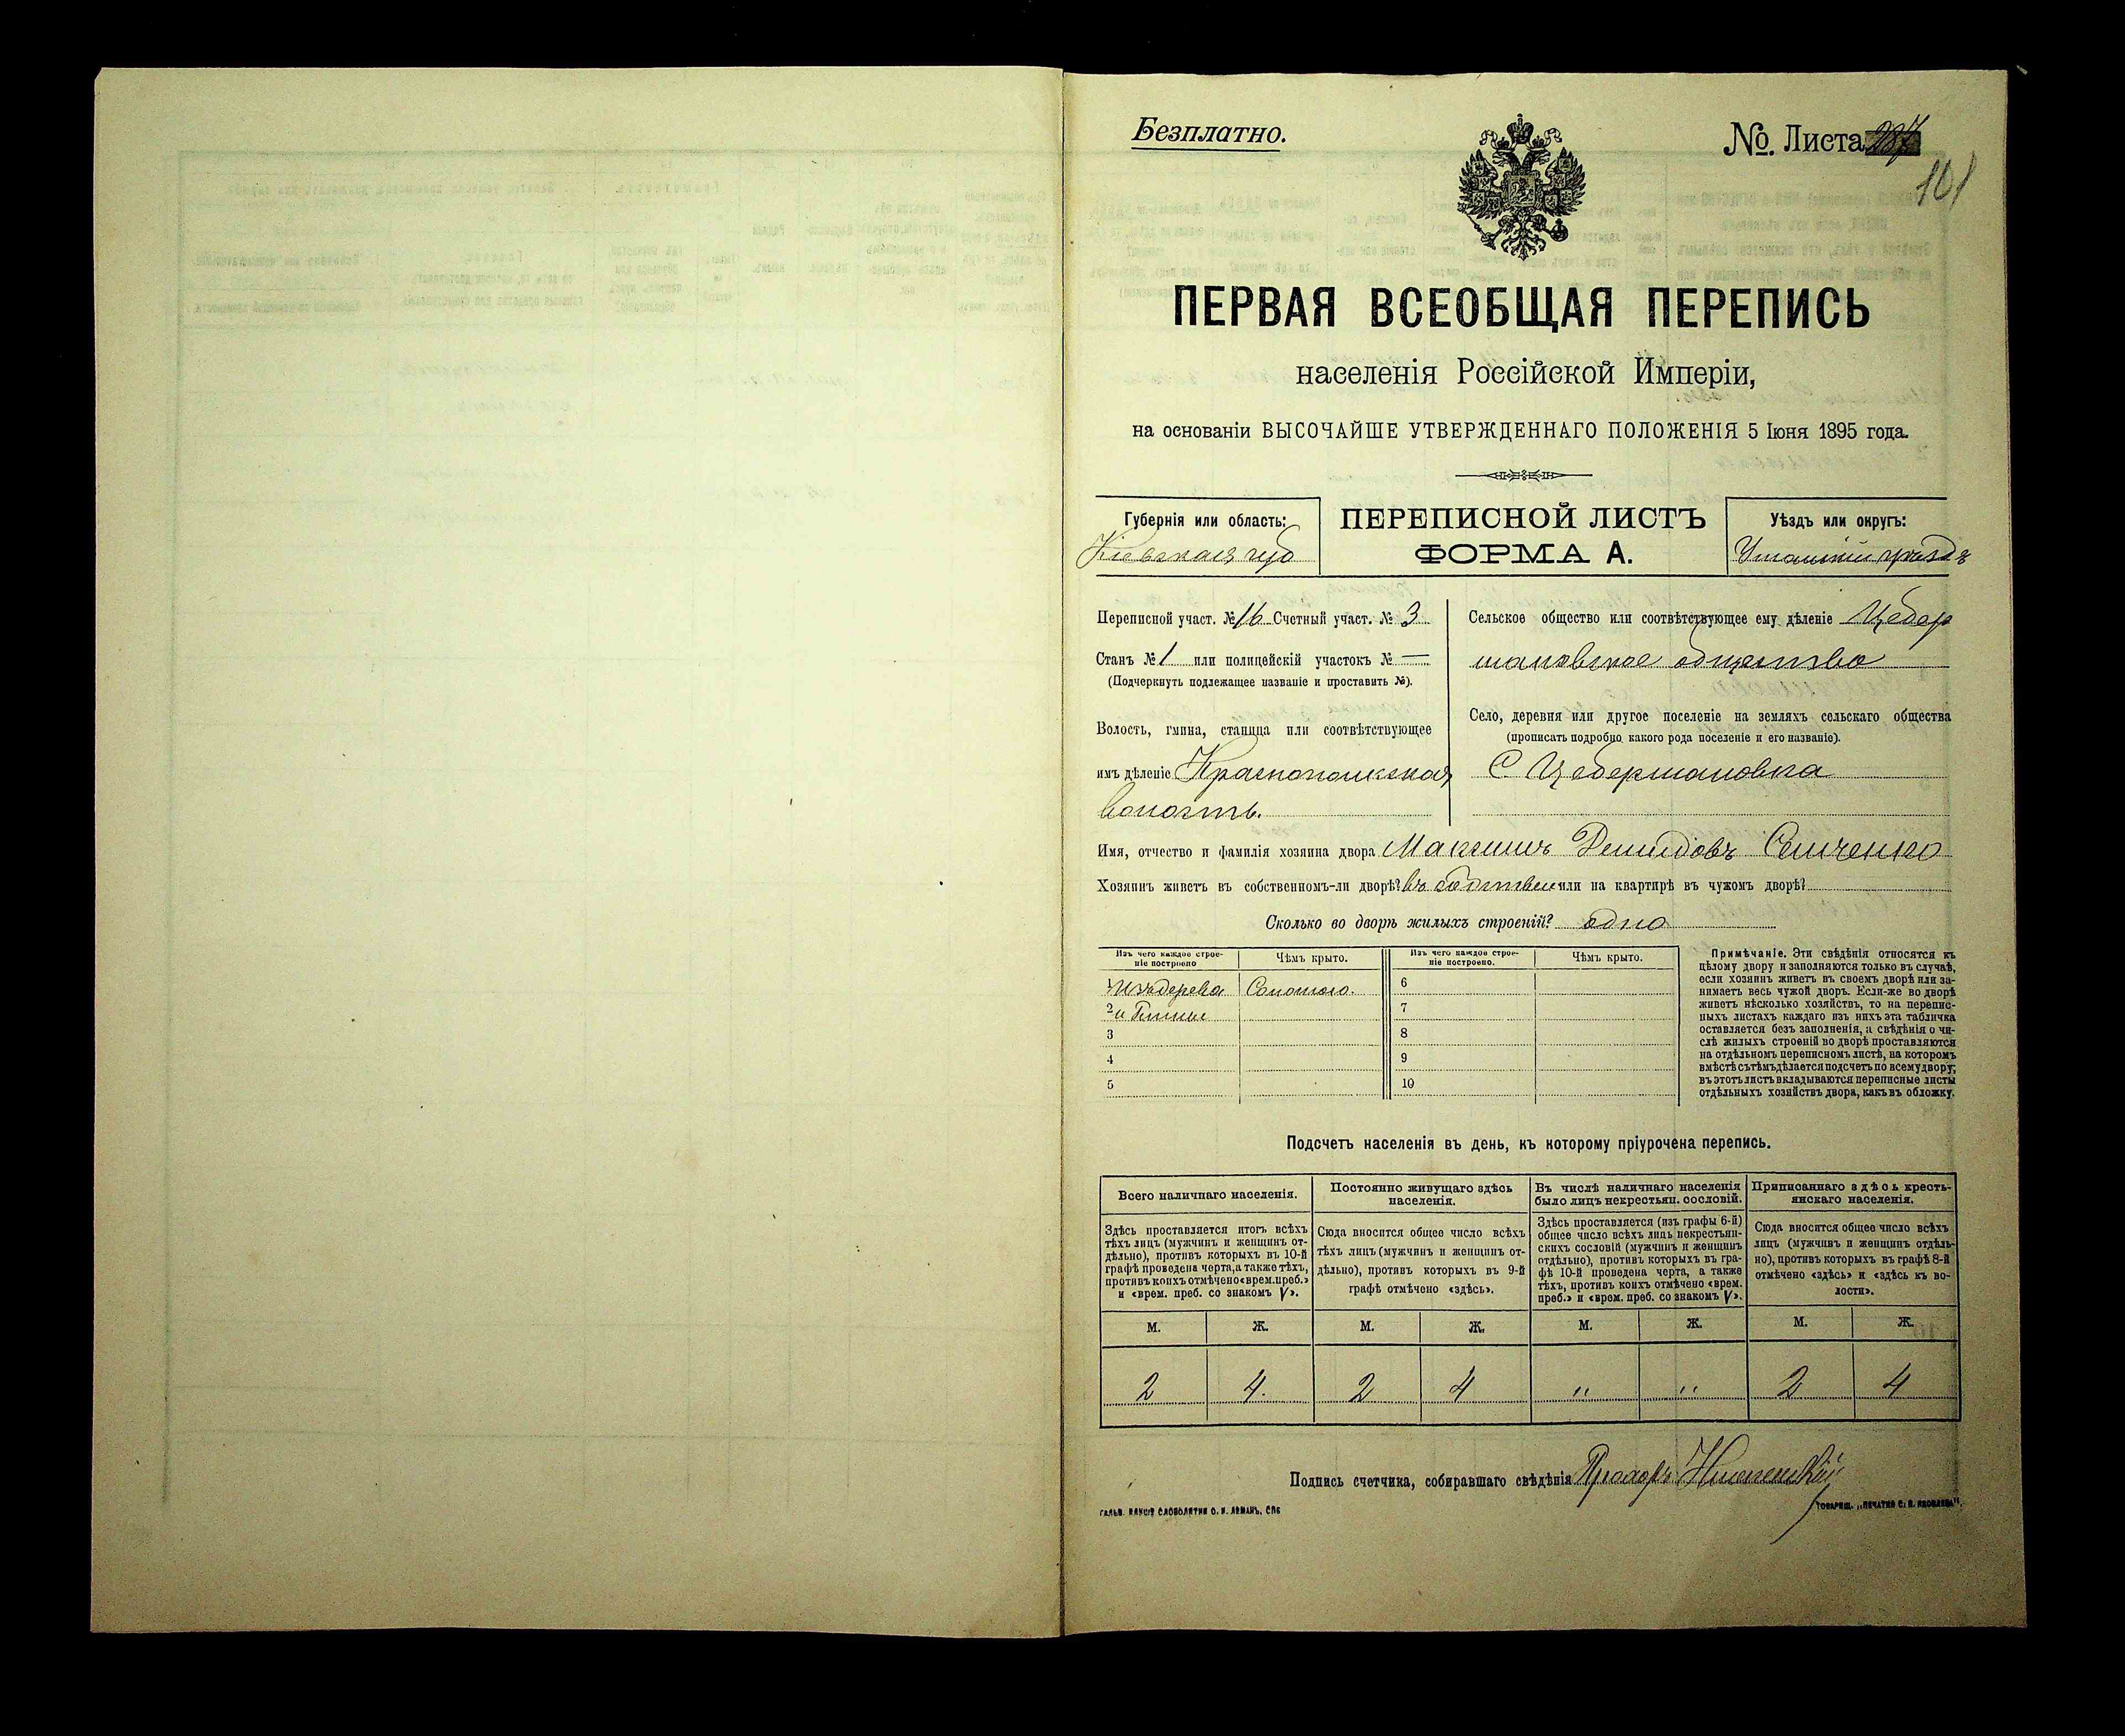 Безплатно.
№ Листа 287
101
ПЕРВАЯ ВСЕОБЩАЯ ПЕРЕПИСЬ
населенія Россійской Имперіи,
на основаніи ВЫСОЧАЙШЕ УТВЕРЖДЕННАГО ПОЛОЖЕНІЯ 5 Іюня 1895 года.
Губернія или область:
Кіевская губ
ПЕРЕПИСНОЙ ЛИСТЪ
ФОРМА А.
Уѣздъ или округъ:
Уманскій уѣздъ
Переписной участ. № 16 Счетный участ. № 3
Станъ № 1 или полицейскій участокъ № —
(Подчеркнуть подлежащее названіе и проставить №).
Волость, гмина, станица или соотвѣтствующее
имъ дѣленіе Краснопольская
волость.
Сельское общество или соотвѣтствующее ему дѣленіе Цебер
мановское общество
Село, деревня или другое поселеніе на земляхъ сельскаго общества
(прописать подробно какого рода поселеніе и его названіе).
С. Цебермановка
Имя, отчество и фамилія хозяина двора Максимъ Демидовъ Семченко
Хозяинъ живетъ въ собственномъ-ли дворѣ? въ собствен или на квартирѣ въ чужомъ дворѣ?
Сколько во дворѣ жилыхъ строеній? одно
Изъ чего каждое строе-
ніе построено
Чѣмъ крыто.
Изъ чего каждое строе-
ніе построено.
Чѣмъ крыто.
1 Изъ дерева Соломою. 6
2 и Глины 7
3 8
4 9
5 10
Примѣчаніе. Эти свѣдѣнія относятся къ
цѣлому двору и заполняются только въ случаѣ,
если хозяинъ живетъ въ своемъ дворѣ или за-
нимаетъ весь чужой дворъ. Если-же во дворѣ
живетъ нѣсколько хозяйствъ, то на перепис-
ныхъ листахъ каждаго изъ нихъ эта табличка
оставляется безъ заполненія, а свѣдѣнія о чи-
слѣ жилыхъ строеній во дворѣ проставляются
на отдѣльномъ переписномъ листѣ, на которомъ
вмѣстѣ съ тѣмъ дѣлается подсчетъ по всему двору;
въ этотъ листъ вкладываются переписные листы
отдѣльныхъ хозяйствъ двора, какъ въ обложку.
Подсчетъ населенія въ день, къ которому пріурочена перепись.
Всего наличнаго населенія.
Здѣсь проставляется итогъ всѣхъ
тѣхъ лицъ (мужчинъ и женщинъ от-
дѣльно), противъ которыхъ въ 10-й
графѣ проведена черта, а также тѣхъ,
противъ коихъ отмѣчено «врем. преб.»
и «врем. преб. со знакомъ V».
Постоянно живущаго здѣсь
населенія.
Сюда вносится общее число всѣхъ
тѣхъ лицъ (мужчинъ и женщинъ от-
дѣльно), противъ которыхъ въ 9-й
графѣ отмѣчено «здѣсь».
Въ числѣ наличнаго населенія
было лицъ некрестьян. сословій.
Здѣсь проставляется (изъ графы 6-й)
общее число всѣхъ лицъ некрестьян-
скихъ сословій (мужчинъ и женщинъ
отдѣльно), противъ которыхъ въ гра-
фѣ 10-й проведена черта, а также
тѣхъ, противъ коихъ отмѣчено «врем.
преб.» и «врем. преб. со знакомъ V».
Приписаннаго здѣсь кресть-
янскаго населенія.
Сюда вносится общее число всѣхъ
лицъ (мужчинъ и женщинъ отдѣль-
но), противъ которыхъ въ графѣ 8-й
отмѣчено «здѣсь» и «здѣсь къ во-
лости».
М. Ж. М. Ж. М. Ж. М. Ж.
2 4. 2 4 " " 2 4
Подпись счетчика, собиравшаго свѣдѣнія Прохоръ
ТОВАРИЩ. „ПЕЧАТНЯ С. П. ЯКОВЛЕВА".
СЛОВОЛИТНИ О. И. ЛЕМАНЪ, СПБ